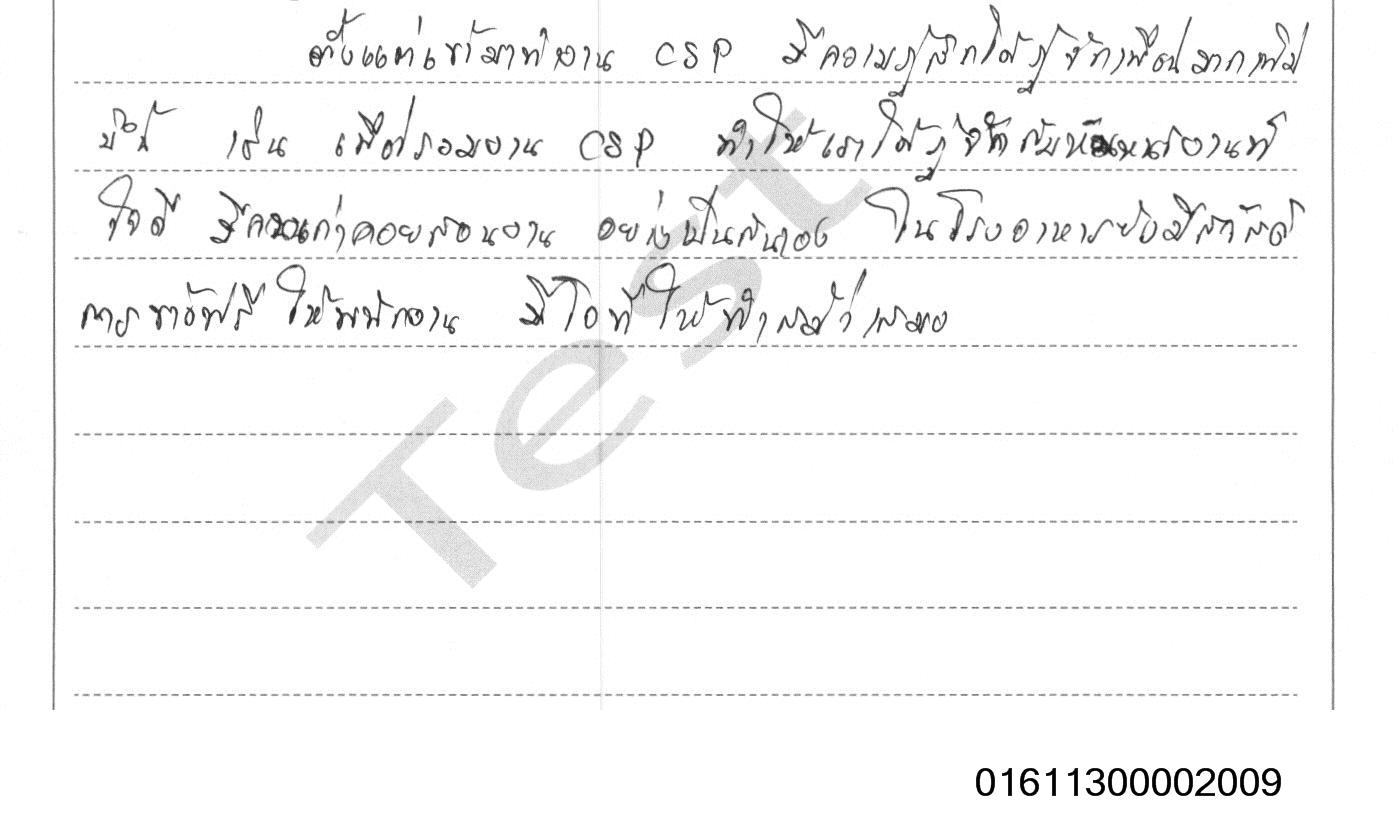 ตั้งแต่เข้ามาทำงาน CSP มีความรู้สึกได้รู้จักเพื่อนมากเพิ่ม
เช่น เพื่อนร่วมงาน CSP ทำให้เราได้รู้จักกับหัวหน้างานที่
ใจดี มีคนเก่าคอยสอนงาน อย่างเป็นกันเอง ในโรงอาหารยังมีสวัสดิ
การ ข้าวฟรี ให้พนักงาน มีโอที ให้ทำสม่ำเสมอ
Test
01611300002009